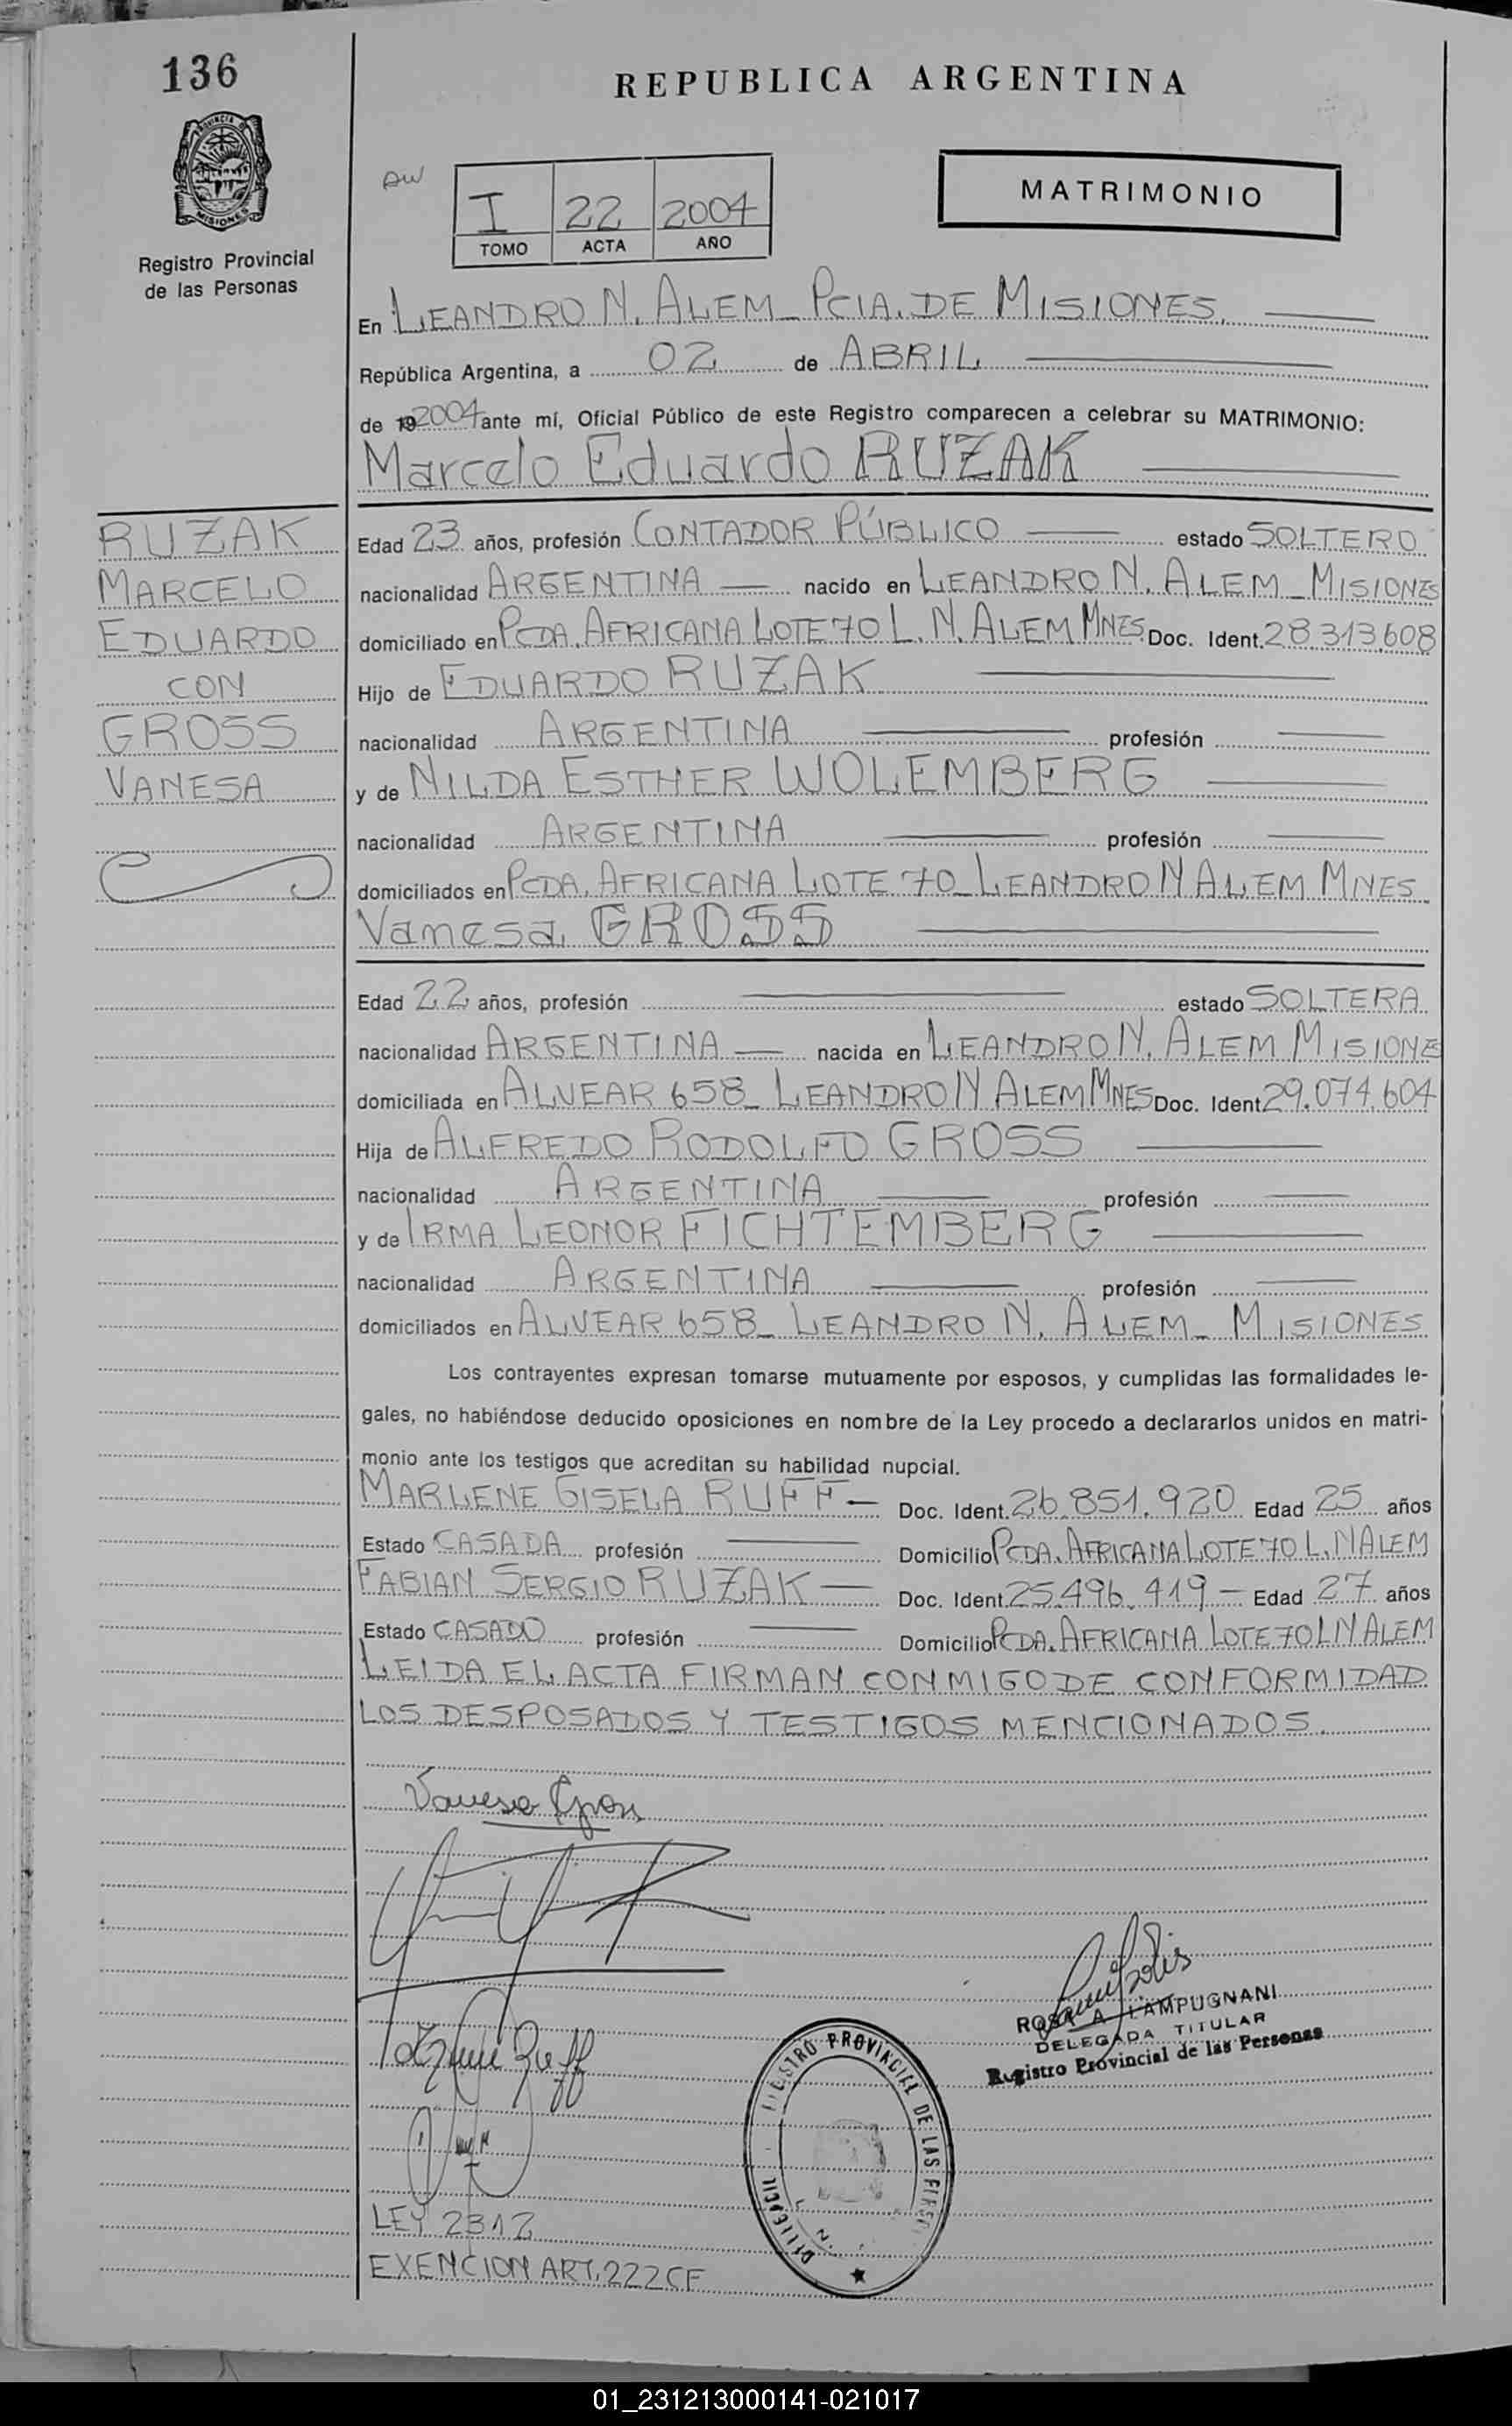 136
REPUBLICA ARGENTINA
PROVINCIA DE
MISIONES
Registro Provincial
de las Personas
AW
I 22 2004
TOMO ACTA AÑO
MATRIMONIO
En LEANDRO N. ALEM_ PCIA. DE MISIONES.
República Argentina, a 02 de ABRIL
de 192004 ante mí, Oficial Público de este Registro comparecen a celebrar su MATRIMONIO:
Marcelo Eduardo RUZAK
RUZAK
MARCELO
EDUARDO
CON
GROSS
VANESA
Edad 23 años, profesión CONTADOR PÚBLICO estado SOLTERO
nacionalidad ARGENTINA nacido en LEANDRO N. ALEM_MISIONES
domiciliado en PCDA. AFRICANA LOTE 70 L. N. ALEM MNES. Doc. Ident. 28.313.608
Hijo de EDUARDO RUZAK
nacionalidad ARGENTINA profesión
y de NILDA ESTHER WOLEMBERG
nacionalidad ARGENTINA profesión
domiciliados en PCDA. AFRICANA LOTE 70_ LEANDRO N ALEM MNES
Vanesa GROSS
Edad 22 años, profesión estado SOLTERA
nacionalidad ARGENTINA nacida en LEANDRO N. ALEM MISIONE
domiciliada en ALVEAR 658_ LEANDRO N ALEM MNES Doc. Ident. 29.074.604
Hija de ALFREDO RODOLFO GROSS
nacionalidad ARGENTINA profesión
y de IRMA LEONOR FICHTEMBERG
nacionalidad ARGENTINA profesión
domiciliados en ALVEAR 658_ LEANDRO N. ALEM_ MISIONES
Los contrayentes expresan tomarse mutuamente por esposos, y cumplidas las formalidades le-
gales, no habiéndose deducido oposiciones en nombre de la Ley procedo a declararlos unidos en matri-
monio ante los testigos que acreditan su habilidad nupcial.
MARLENE GISELA RUFF — Doc. Ident. 26.851.920 Edad 25 años
Estado CASADA profesión Domicilio PCDA. AFRICANA LOTE 70 L. N ALEM
FABIAN SERGIO RUZAK — Doc. Ident. 25.496.419 — Edad 27 años
Estado CASADO profesión Domicilio PCDA. AFRICANA LOTE 70 L N ALEM
LEIDA EL ACTA FIRMAN CONMIGO DE CONFORMIDAD
LOS DESPOSADOS Y TESTIGOS MENCIONADOS.
Vanesa Gross
ROSA A LAMPUGNANI
DELEGADA TITULAR
Registro Provincial de las Personas
Ruff
REGISTRO PROVINCIAL DE LAS
LEY 2312
EXENCION ART. 222 CF
01_231213000141-021017